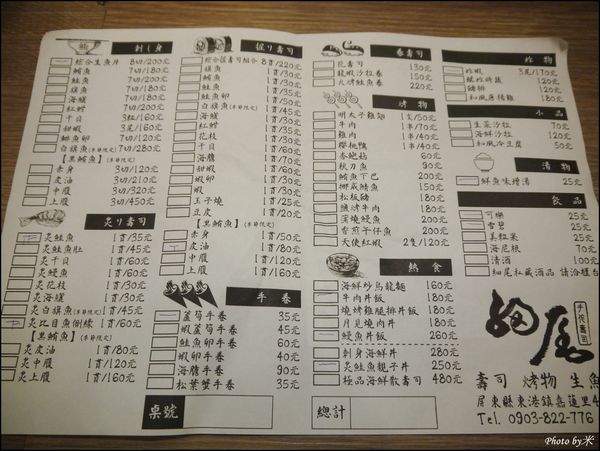 刺し身
綜合生魚片 8切/200元
鮪魚 7切/180元
鮭魚 7切/200元
旗魚 7切/180元
海鱺 7切/180元
紅魽 7切/200元
干貝 3粒/160元
甜蝦 3尾/160元
鮭魚卵 7切/120元
白旗魚(季節限定) 7切/280元
【黑鮪魚】(季節限定)
赤身 3切/120元
皮油 3切/210元
中腹 3切/320元
上腹 3切/450元
炙り壽司
炙鮭魚 1貫/35元
炙鮭魚肚 1貫/45元
炙干貝 1貫/60元
炙鰻魚 1貫/60元
炙花枝 1貫/30元
炙海鱺 1貫/30元
炙白旗魚(季節限定) 1貫/45元
炙比目魚側緣 1貫/60元
【黑鮪魚】(季節限定)
炙皮油 1貫/80元
炙中腹 1貫/120元
炙上腹 1貫/160元
握り壽司
綜合握壽司組合 8貫/220元
旗魚 1貫/30元
鮪魚 1貫/30元
鮭魚 1貫/30元
白旗魚(季節限定)
海鱺
紅魽
花枝
干貝
海膽
甜蝦
鮭魚卵
蝦
玉子燒
豆皮 1貫/20元
【黑鮪魚】(季節限定)
赤身 1貫/50元
皮油 1貫/80元
中腹 1貫/120元
上腹 1貫/160元
手卷
蘆筍手卷 35元
蝦蘆筍手卷 45元
鮭魚卵手卷 60元
蝦卵手卷 40元
海膽手卷 90元
松葉蟹手卷 35元
桌號
卷壽司
花壽司 130元
龍蝦沙拉卷 150元
火烤鮭魚卷 220元
烤物
明太子雞翅 1支/50元
牛肉 1串/70元
雞肉 1串/40元
櫻桃鴨 1串/40元
杏鮑菇 60元
秋刀魚 90元
鮪魚下巴 200元
挪威鯖魚 150元
松板豬 180元
鹽烤牛肉 200元
蒲燒鰻魚 200元
香煎午仔魚 200元
天使紅蝦 2隻/120元
熱食
海鮮炒烏龍麵 160元
牛肉丼飯 180元
燒烤雞腿排丼飯 180元
月見燒肉丼 180元
鰻魚丼飯 260元
刺身海鮮丼 280元
炙鮭魚親子丼 250元
極品海鮮散壽司 480元
總計
炸物
炸蝦 3尾/170元
120元
豬排 120元
和風唐揚雞 180元
小品
生菜沙拉 70元
海鮮沙拉 120元
和風冷豆腐 50元
湯物
鮮魚味增湯 25元
飲品
可樂 25元
雪碧 25元
美粒果 25元
海尼根 70元
清酒 100元
細尾私藏酒品 請洽櫃台
細尾
手作壽司
壽司 烤物 生魚
屏東縣東港鎮嘉蓮里4
Tel. 0903-822-776
Photo by 米